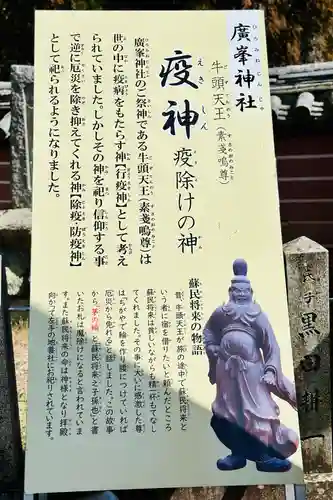 廣峯神社
ひろみねじんじゃ
牛頭天王(素戔嗚尊)
ごずてんおう すさのおのみこと
疫神 疫除けの神
えきしん
廣峯神社のご祭神である牛頭天王(素戔嗚尊)は
世の中に疫病をもたらす神【行疫神】として考え
られていました。しかしその神を祀り信仰する事
で逆に厄災を除き抑えてくれる神【除疫・防疫神】
として祀られるようになりました。
蘇民将来の物語
昔、牛頭天王が旅の途中で蘇民将来と
いう者に宿を借りたいと頼んだところ
蘇民将来は貧しいながらも精一杯もてな
してくれました。その事に大いに感激した尊
は「ちがやで輪を作り腰につけていれば
厄災から免れる」と話しました。この故事
から、「茅の輪」と「蘇民将来之子孫也」と書
いたお札は魔除けになると言われていま
す。また蘇民将来の命は神様となり拝殿
向かって左手の地養社にお祀りされています。